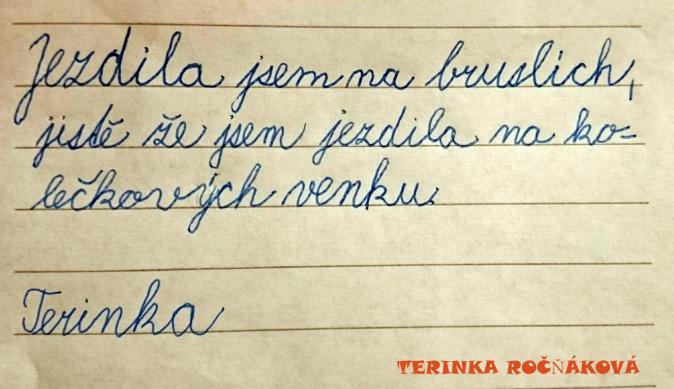 Jezdila jsem na bruslich,
jistě že jsem jezdila na ko-
lečkových venku.
Terinka
TERINKA ROČŇÁKOVÁ